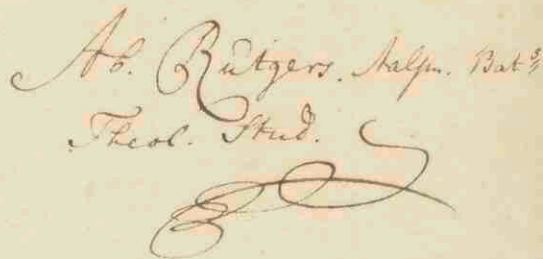 Ab. Rutgers. Aalsm. Bats
Theol. Stud.